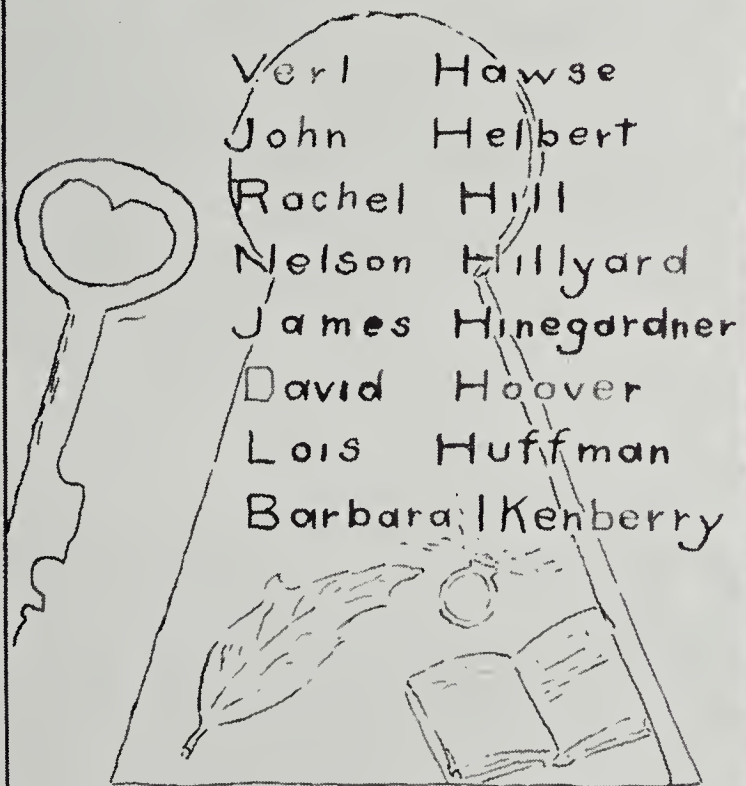 Verl Hawse
John Helbert
Rachel Hill
Nelson Hillyard
James Hinegardner
David Hoover
Lois Huffman
Barbara IKenberry